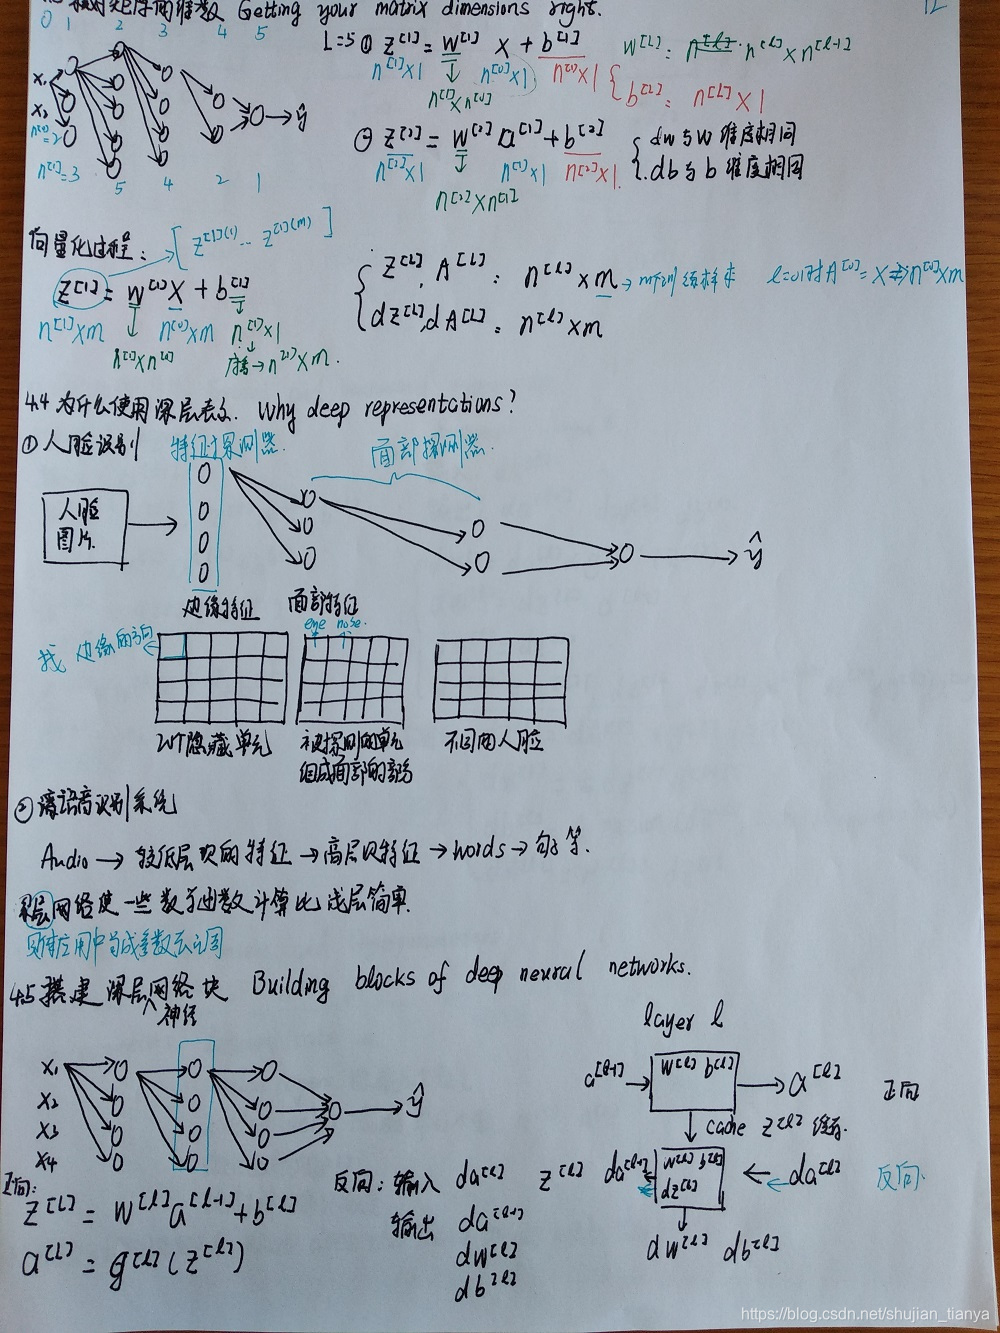 核对矩阵的维数 Getting your matrix dimensions right.
12
0 1 2 3 4 5
x₁
x₂
n[0]=2
n[1]=3
5 4 2 1
ŷ
L=5 ① z[1] = w[1] x + b[1]
n[1]×1 n[0]×1 n[1]×1
n[1]×n[0]
w[l]: n[l]×n[l-1]
b[l]: n[l]×1
② z[2] = w[2] a[1] + b[2]
n[2]×1 n[1]×1 n[2]×1
n[2]×n[1]
dw与w维度相同
db与b维度相同
向量化过程:
[z[1](1) ... z[1](m)]
z[1] = w[1]X + b[1]
n[1]×m n[0]×m n[1]×1
n[1]×n[0] 广播→n[1]×m.
z[l], A[l]: n[l]×m → m个训练样本 l=0时A[0]=X n[0]×m
dz[l], dA[l]: n[l]×m
4.4 为什么使用深层表示. Why deep representations?
① 人脸识别 特征探测器. 面部探测器.
人脸
图片.
ŷ
边缘特征 面部特征
eye nose.
找边缘的方向
20个隐藏单元 被探测的单元 不同的人脸
组成面部的部分
② 语音识别系统
Audio → 较低层次的特征 → 高层次特征 → words → 句子等.
深层网络使一些数学函数计算比浅层简单.
4.5 搭建深层网络块 Building blocks of deep neural networks.
神经
layer l
x₁
x₂
x₃
x₄
ŷ
a[l-1] w[l] b[l] a[l] 正向
cache z[l] 缓存.
da[l-1] w[l] b[l] da[l] 反向.
dz[l]
dw[l] db[l]
正向:
z[l] = w[l]a[l-1]+b[l]
a[l] = g[l](z[l])
反向: 输入 da[l] z[l]
输出 da[l-1]
dw[l]
db[l]
https://blog.csdn.net/shujian_tianya